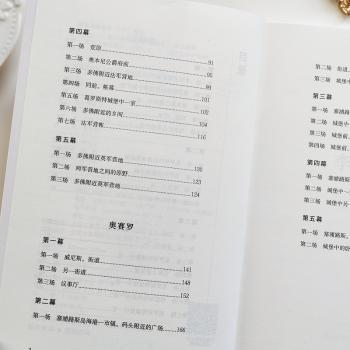 第四幕
第一场 荒原 91
第二场 奥本尼公爵府前 95
第三场 多佛附近法军营地 98
第四场 同前。帐幕 101
第五场 葛罗斯特城堡中一室 102
第六场 多佛附近的乡间 104
第七场 法军营帐 116
第五幕
第一场 多佛附近英军营地 120
第二场 两军营地之间的原野 123
第三场 多佛附近英军营地 124
奥赛罗
第一幕
第一场 威尼斯。街道 141
第二场 另一街道 148
第三场 议事厅 152
第二幕
第一场 塞浦路斯岛海港一市镇。码头附近的广场 166
第二场 街道
第三场 城堡中
第三幕
第一场 塞浦路斯
第二场 城堡中
第三场 城堡前
第四场 城堡前
第四幕
第一场 塞浦路斯
第二场 城堡中
第三场 城堡中
第五幕
第一场 塞浦路斯。
第二场 城堡中的卧